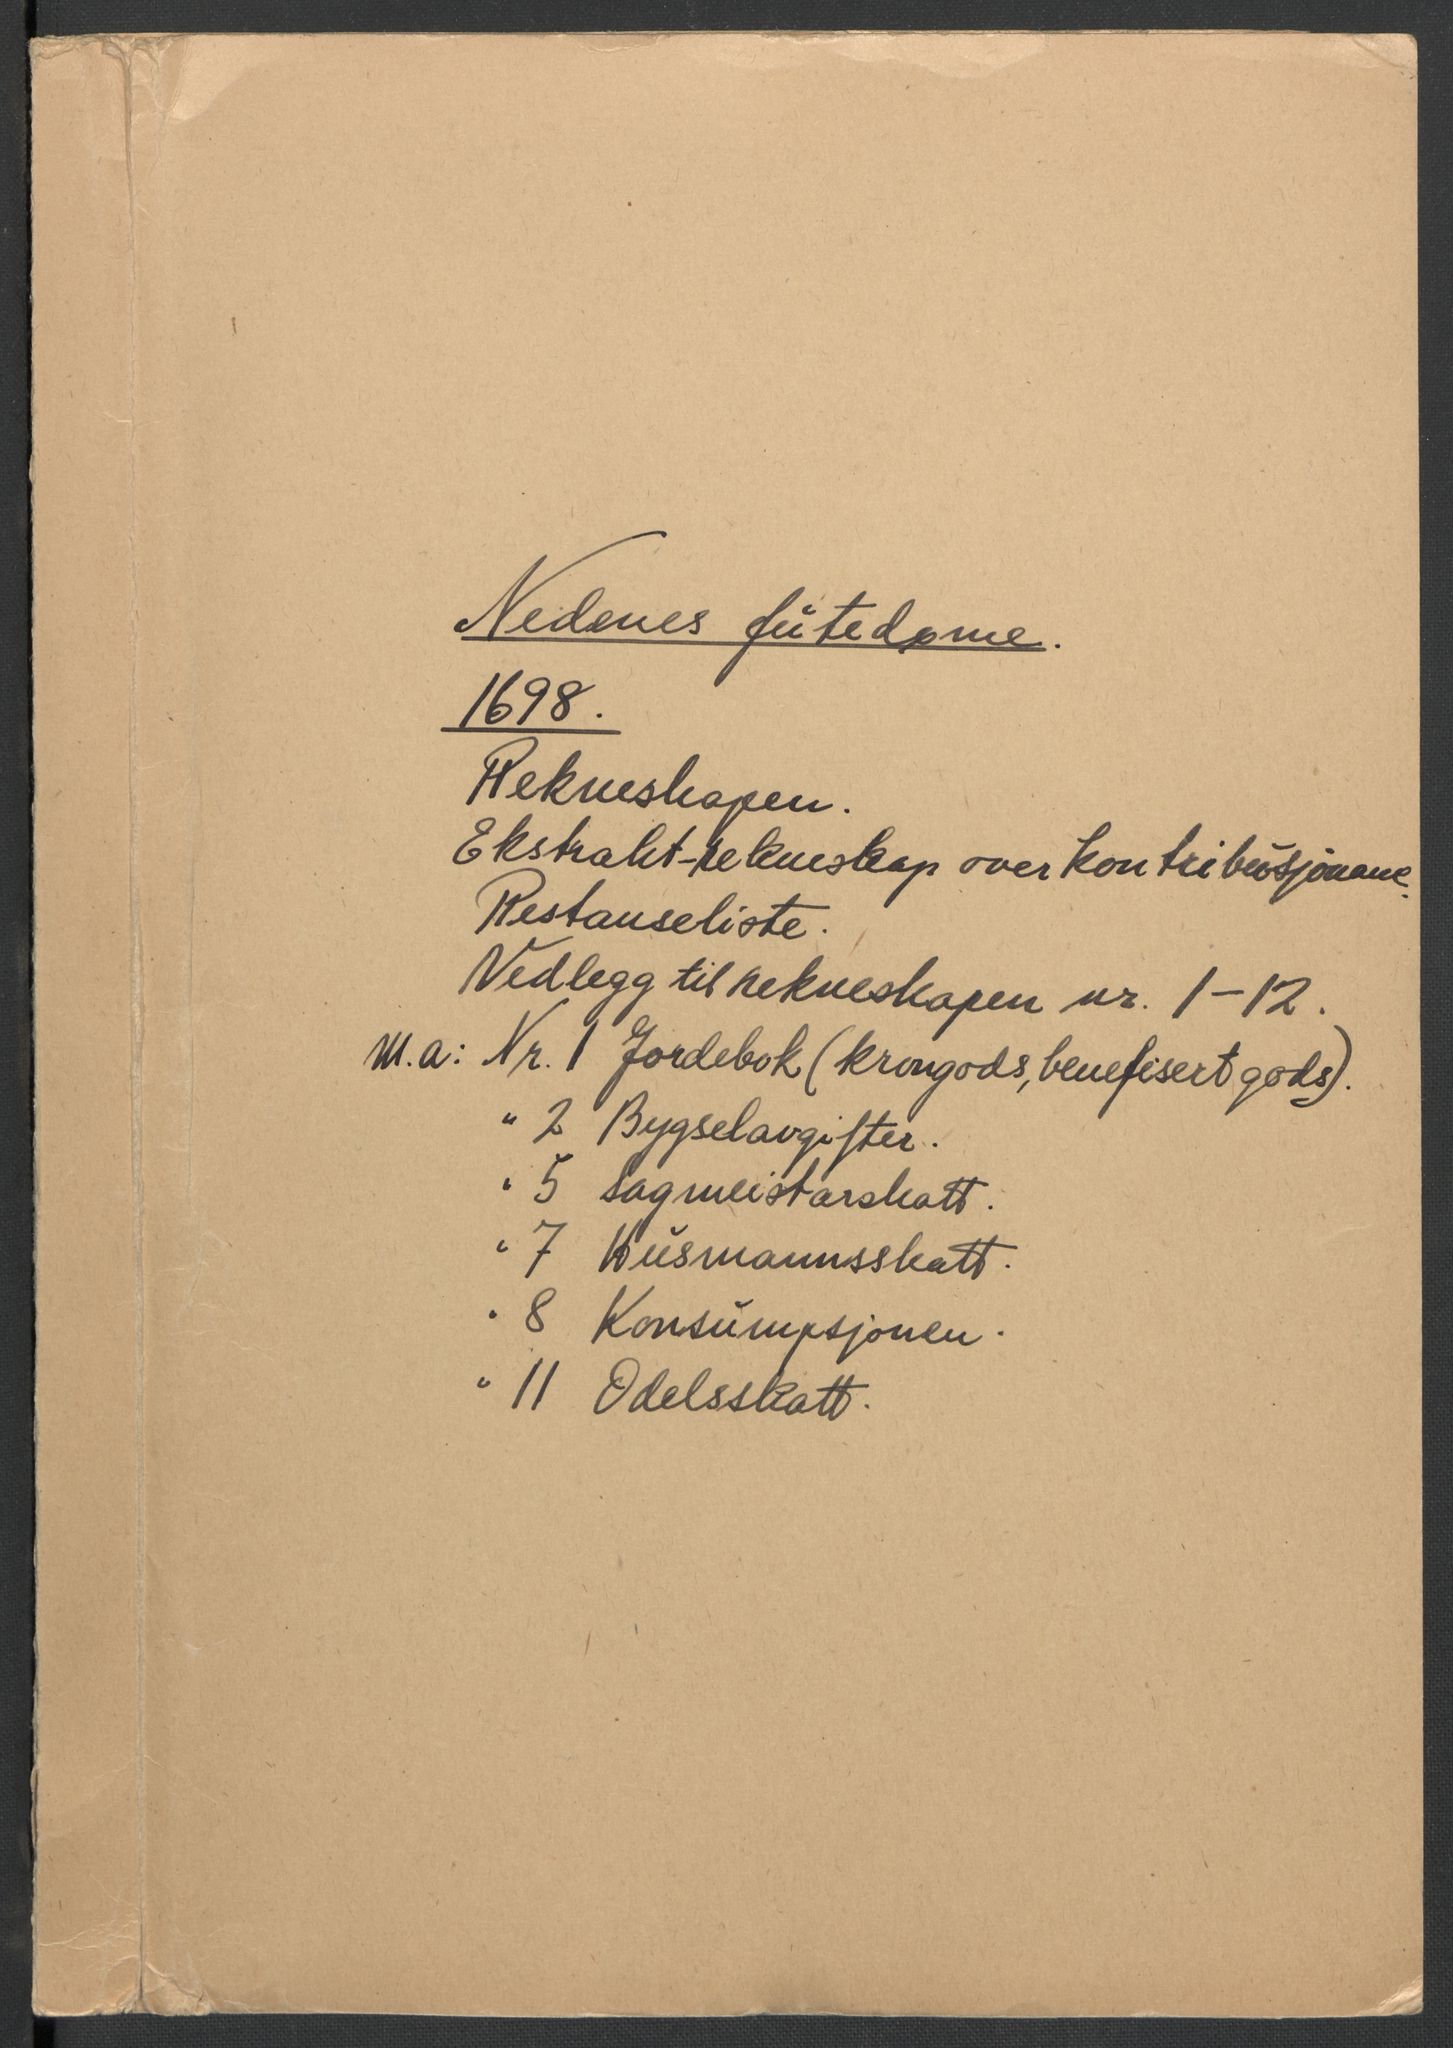 Nedenes futedøme.
1698.
Rekneskapen.
Ekstrakt-rekneskap over kontribusjonane.
Restanseliste.
Vedlegg til rekneskapen nr. 1-12.
M.a: Nr. 1 Jordebok (krongods, benefisert gods).
" 2 Bygselavgifter.
" 5 Sagmeistarskatt.
" 7 Husmannsskatt.
" 8 Konsumpsjonen.
" 11 Odelsskatt.